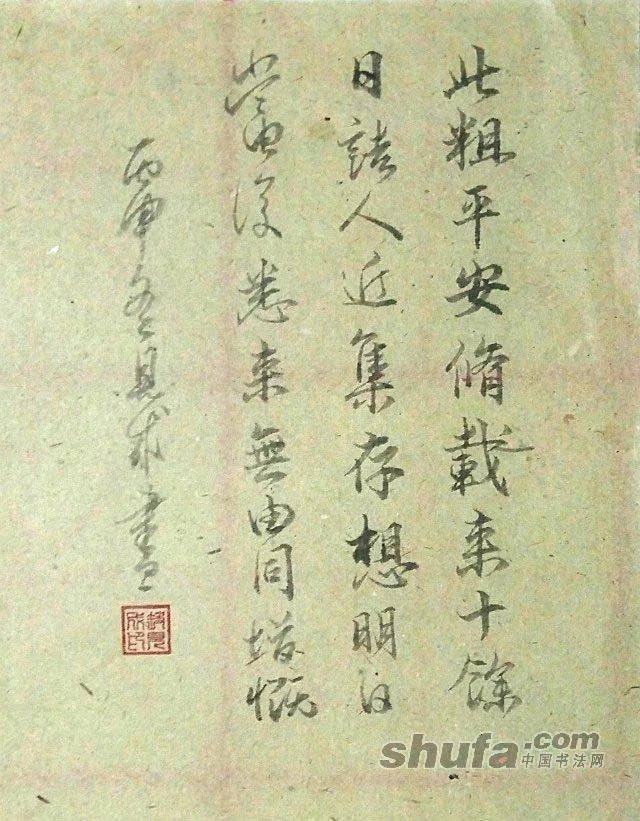 此粗平安脩載来十餘
日諸人近集存想明日
當復悉来無由同增慨
丙申冬書
shufa.com
中国书法网